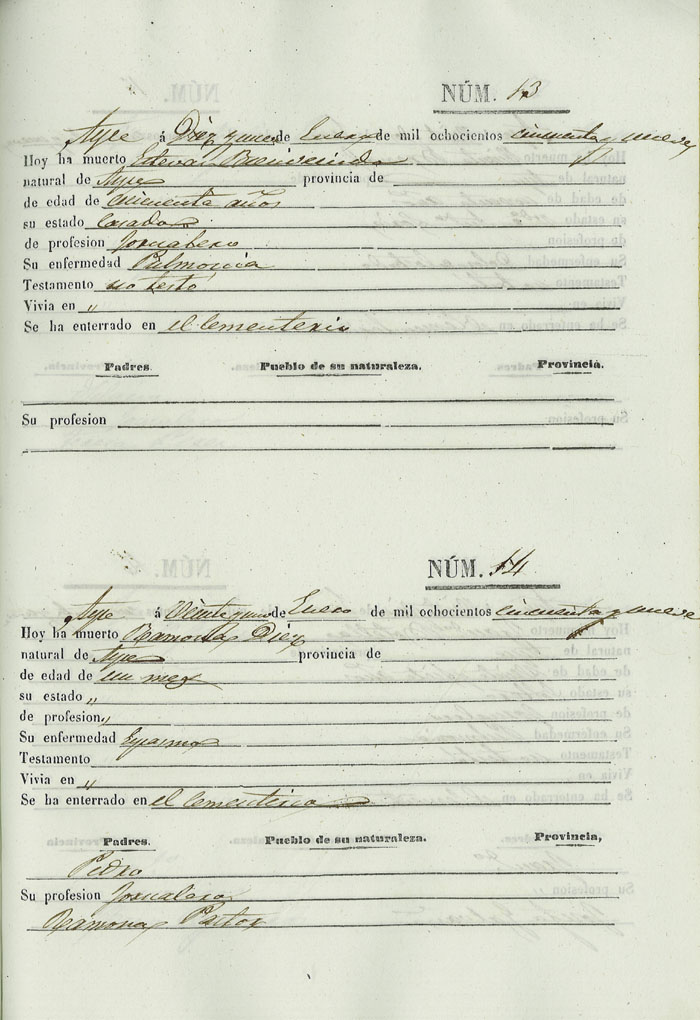 NÚM. 13
Aype á Diez y nuev de Enero de mil ochocientos cincuenta y nueve
Hoy ha muerto Esteva Bienvenido
natural de Aype provincia de
de edad de cincuenta años
su estado Casado
de profesion Jornalero
Su enfermedad Pulmonia
Testamento no testó
Vivia en "
Se ha enterrado en el Cementerio
Padres. Pueblo de su naturaleza. Provincia.
Su profesion
NÚM. 14
Aype á de Enero de mil ochocientos cincuenta y nueve
Hoy ha muerto Ramona Diez
natural de Aype provincia de
de edad de un mes
su estado "
de profesion "
Su enfermedad Espasmo
Testamento
Vivia en "
Se ha enterrado en el Cementerio
Padres. Pueblo de su naturaleza. Provincia,
Pedro
Su profesion Jornalero
Ramona Pastor